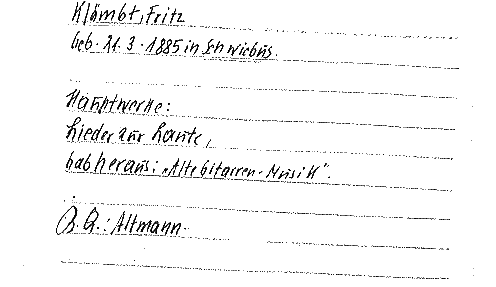 Klämbt, Fritz
Geb. 21.3.1885 in Schwiebus.
Hauptwerke:
Lieder zur Laute,
Gab heraus: „Alte Gitarren-Musik".
B.Q.: Altmann.